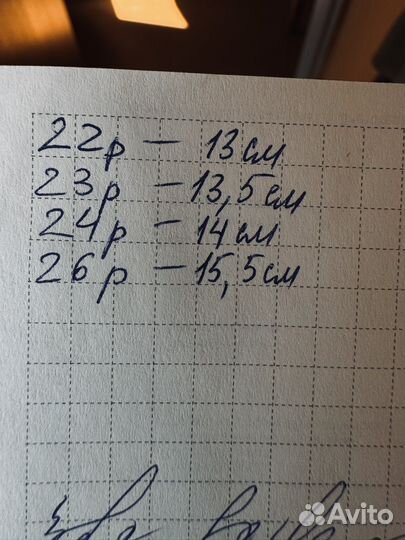 22р – 13 см
23р – 13,5 см
24р – 14 см
26р – 15,5 см
Avito